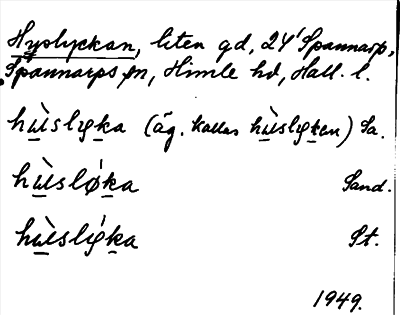 Hyslyckan, liten gd, 2 4¹ Spannarp,
Spannarps sn, Himle hd, Hall. l.
hù̲slyḵa (äg. kallas hù̲slyḵen) Sa.
hù̲sløḵa Sand.
hù̲slyḵa St.
1949.